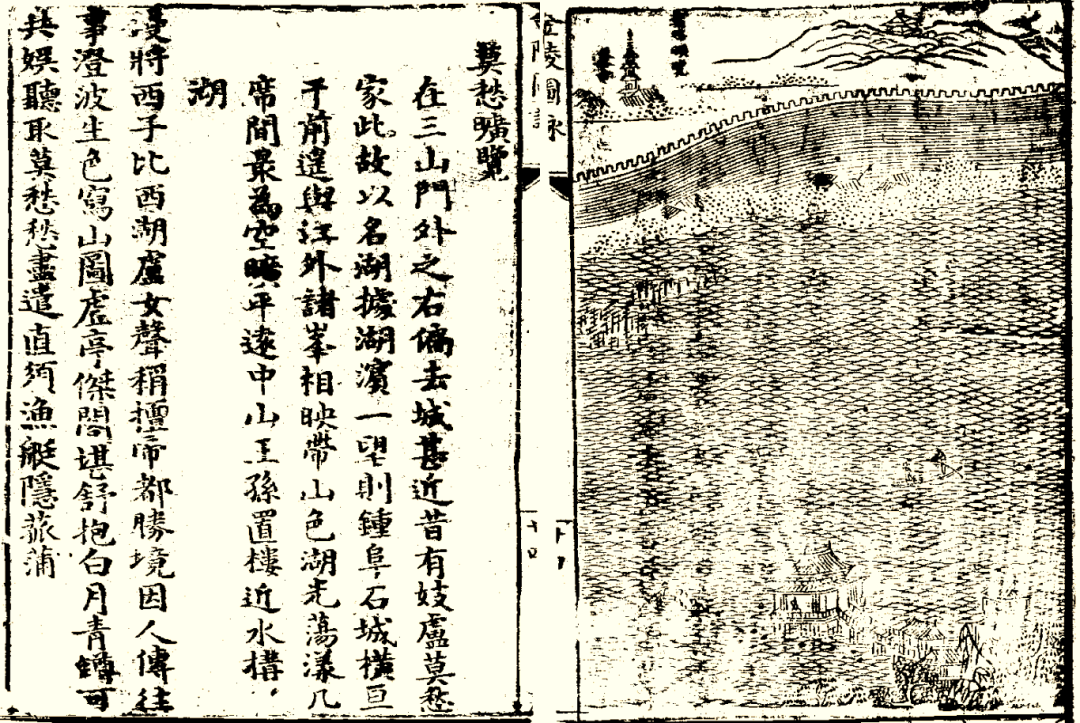 莫愁曠覽
在三山門外之右偏去城甚近昔有妓盧莫愁
家此故以名湖據湖濱一望則鍾阜石城橫亘
于前遠與江外諸峯相映帶山色湖光蕩漾几
席間最為空曠平遠中山王孫置樓近水構
湖
漫將西子比西湖盧女聲稱擅帝都勝境因人傳往
事澄波生色寫山圖虛亭傑閣堪舒抱白月青罇可
共娛聽取莫愁愁盡遣直須漁艇隱菰蒲
金陵圖詠
十四